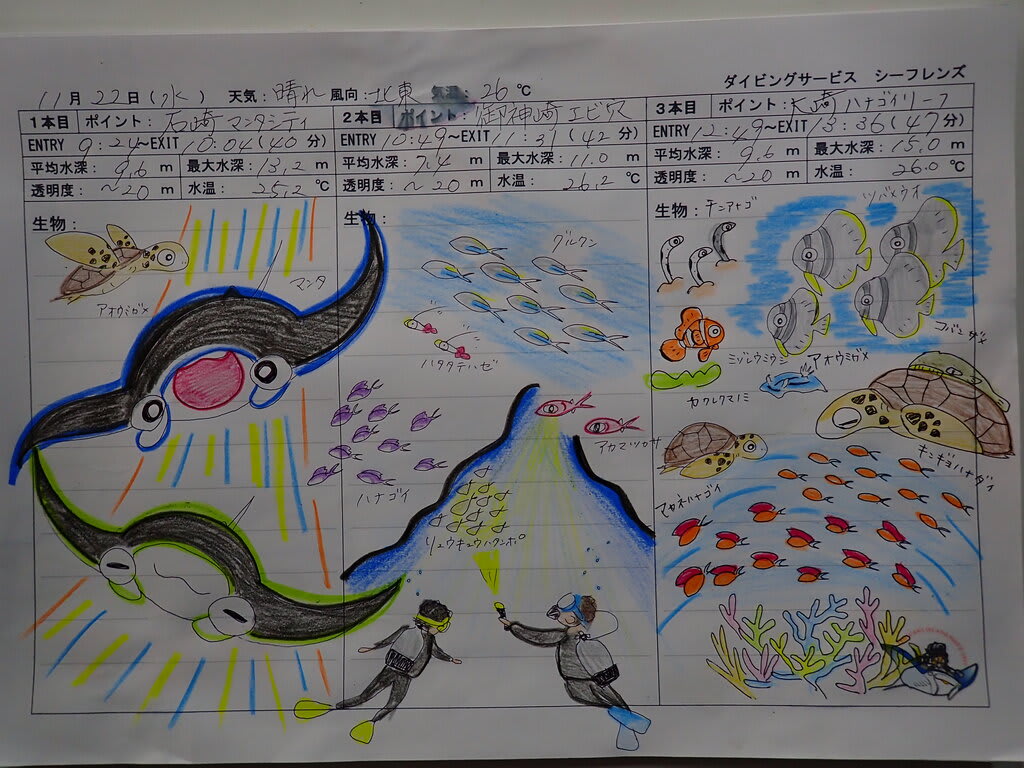 ダイビングサービス シーフレンズ
11月22日(水) 天気:晴れ 風向:北東 気温:26℃
1本目 ポイント:石崎 マンタシティ
ENTRY 9:24~EXIT 10:04(40分)
平均水深:9.6 m 最大水深:13.2 m
透明度:~20 m 水温:25.2 ℃
生物:
アオウミガメ
マンタ
2本目 ポイント:御神崎 エビ穴
ENTRY 10:49~EXIT 11:31(42分)
平均水深:7.4 m 最大水深:11.0 m
透明度:~20 m 水温:26.2 ℃
生物:
グルクン
ハタタテハゼ
ハナゴイ
アカマツカサ
リュウキュウハタンポ
3本目 ポイント:大崎 ハナゴイリーフ
ENTRY 12:49~EXIT 13:36(47分)
平均水深:9.6 m 最大水深:15.0 m
透明度:~20 m 水温:26.0 ℃
生物:チンアナゴ
ツバメウオ
コバンザメ
ミゾレウミウシ
アオウミガメ
カクレクマノミ
キンギョハナダイ